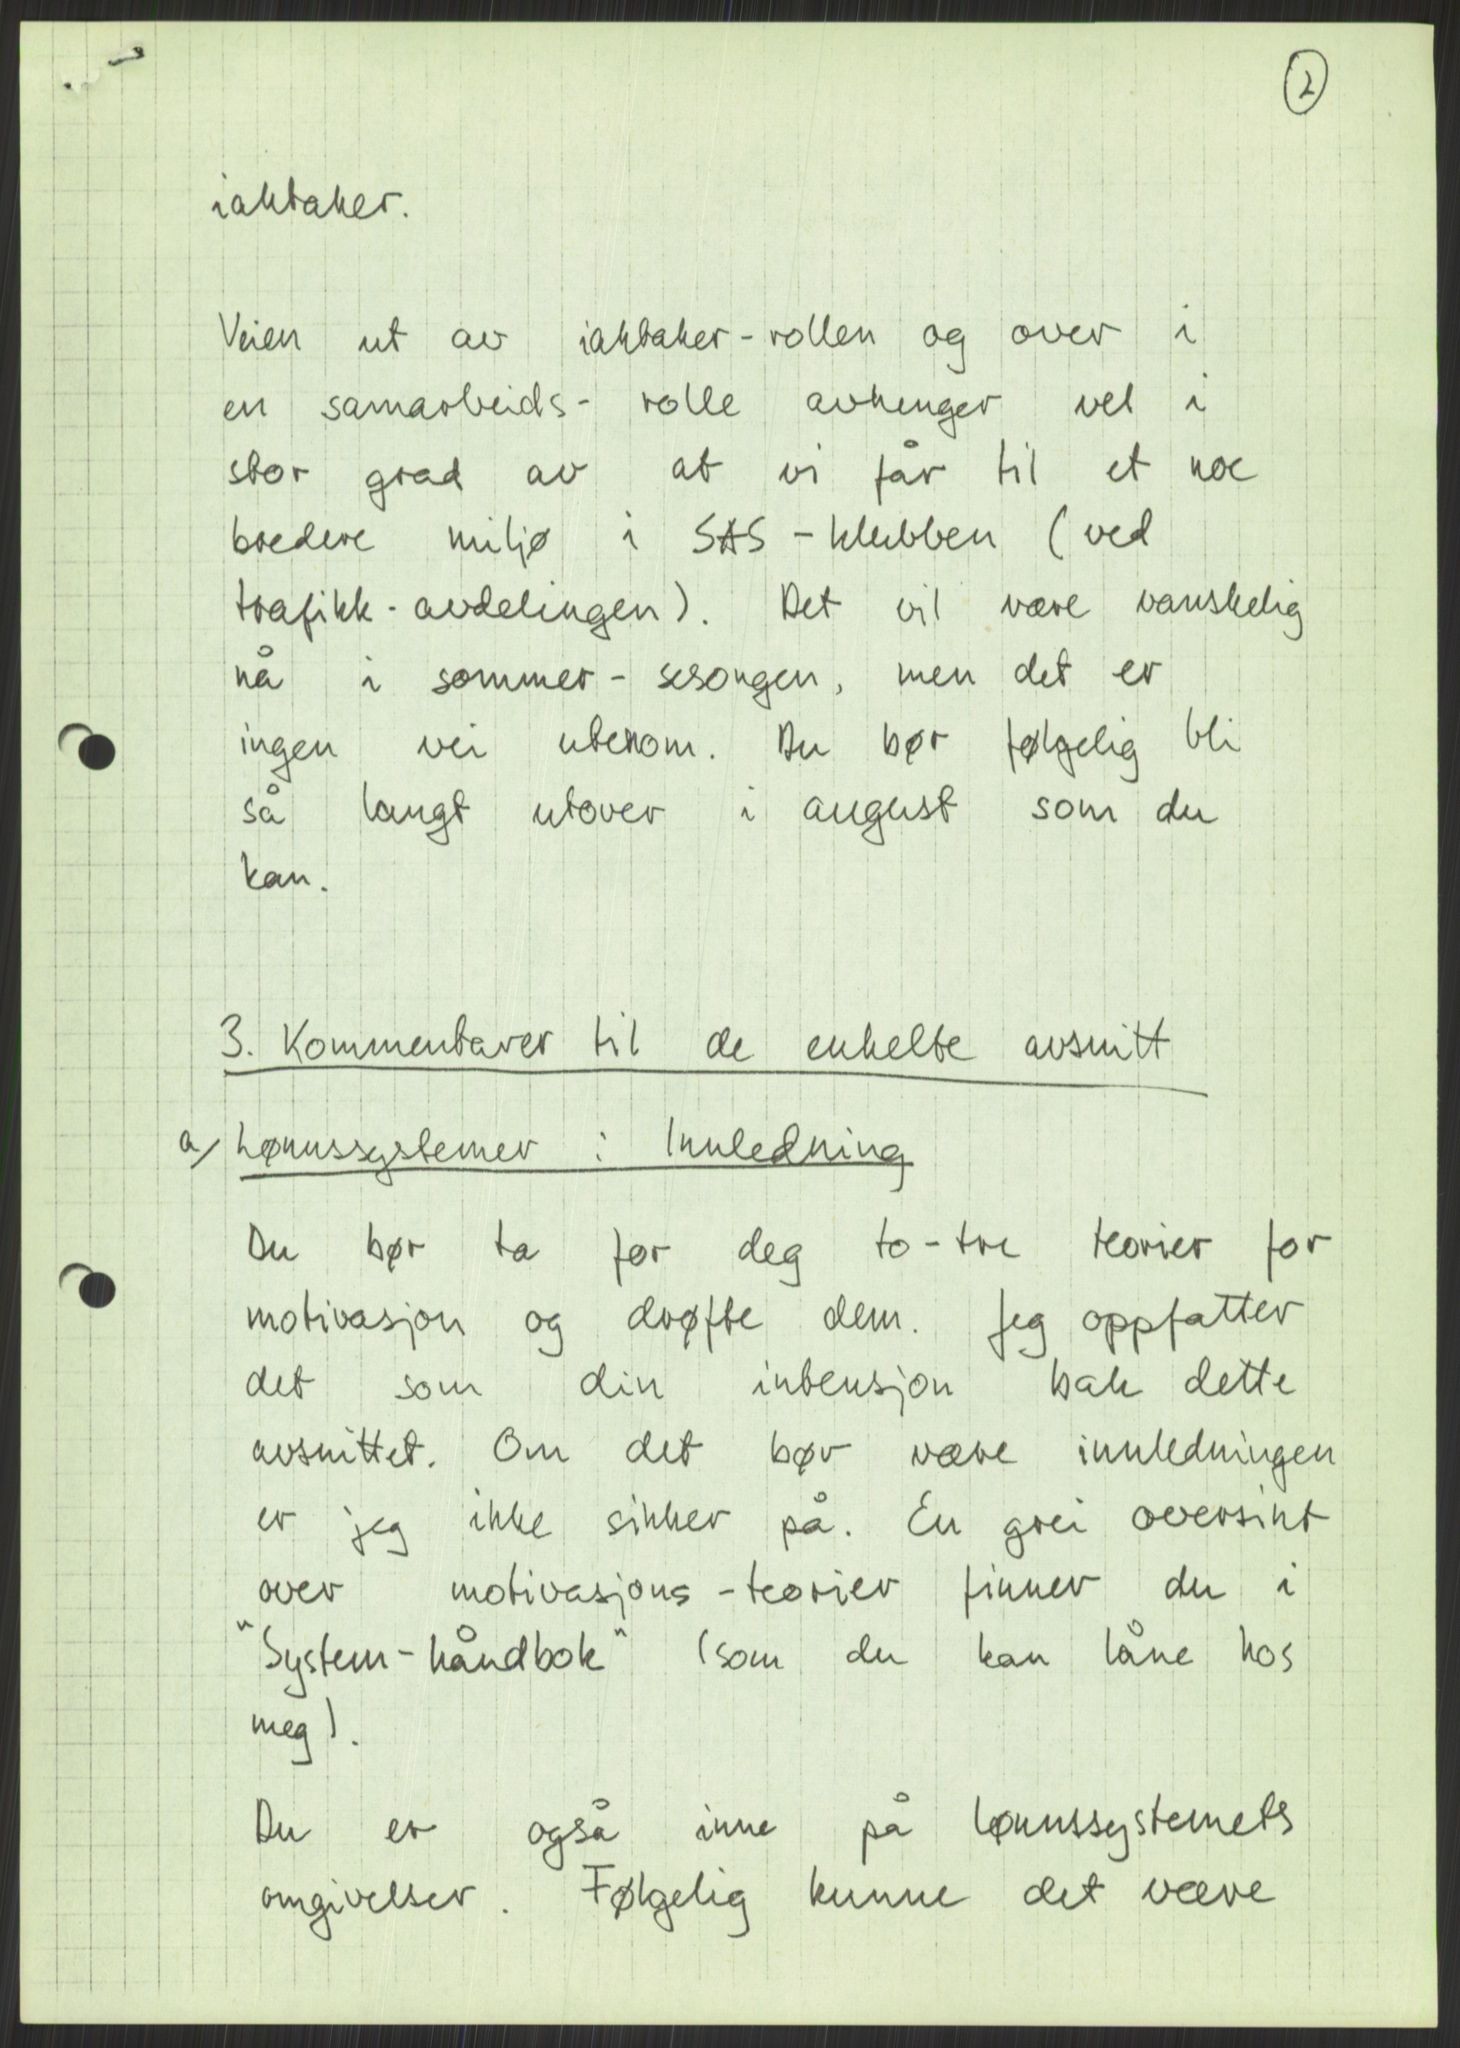 2
iakttaker.
Veien ut av iakttaker-rollen og over i
en samarbeids-rolle avhenger vel i
stor grad av at vi får til et noe
bredere miljø i SAS-klubben (ved
trafikk-avdelingen). Det vil være vanskelig
nå i sommer-sesongen, men det er
ingen vei utenom. Du bør følgelig bli
så langt utover i august som du
kan.
3. Kommentarer til de enkelte avsnitt
a/ Lønnssystemer : Innledning
Du bør ta for deg to-tre teorier for
motivasjon og drøfte dem. Jeg oppfatter
det som din intensjon bak dette
avsnittet. Om det bør være innledningen
er jeg ikke sikker på. En grei oversikt
over motivasjons-teorier finner du i
"System-håndbok" (som du kan låne hos
meg).
Du er også inne på lønnssystemets
omgivelser. Følgelig kunne det være